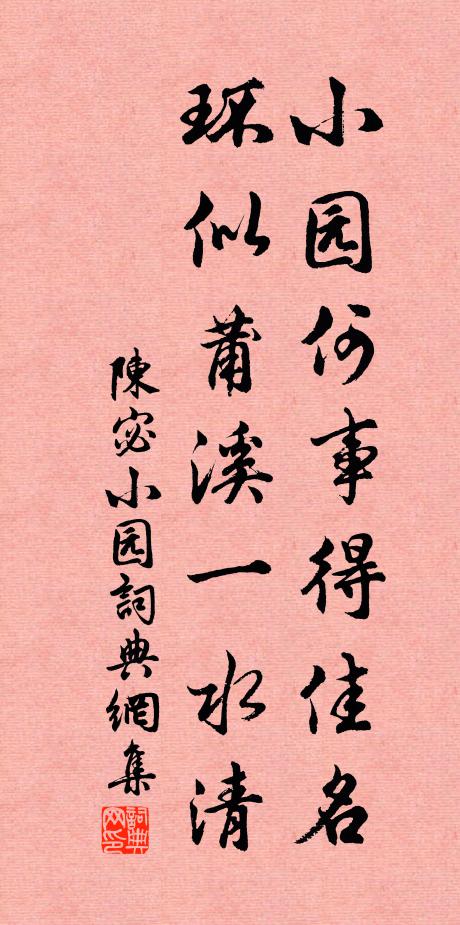 小园何事得佳名
环似莆溪一水清
陳宓小园詞典網集
詞典网印